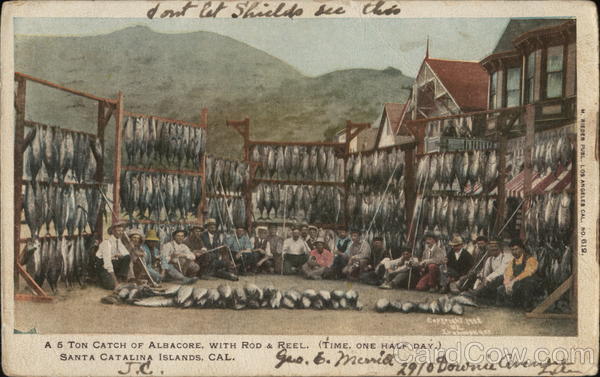 dont let Shields see this
H. RIEDER PUBL. LOS ANGELES CAL. NO. 612.
COPYRIGHT
A 5 TON CATCH OF ALBACORE, WITH ROD & REEL. (TIME, ONE HALF DAY.)
SANTA CATALINA ISLANDS, CAL.
J.C. Geo. E. Merrill
2910 Downie Avenue
CardCow.com